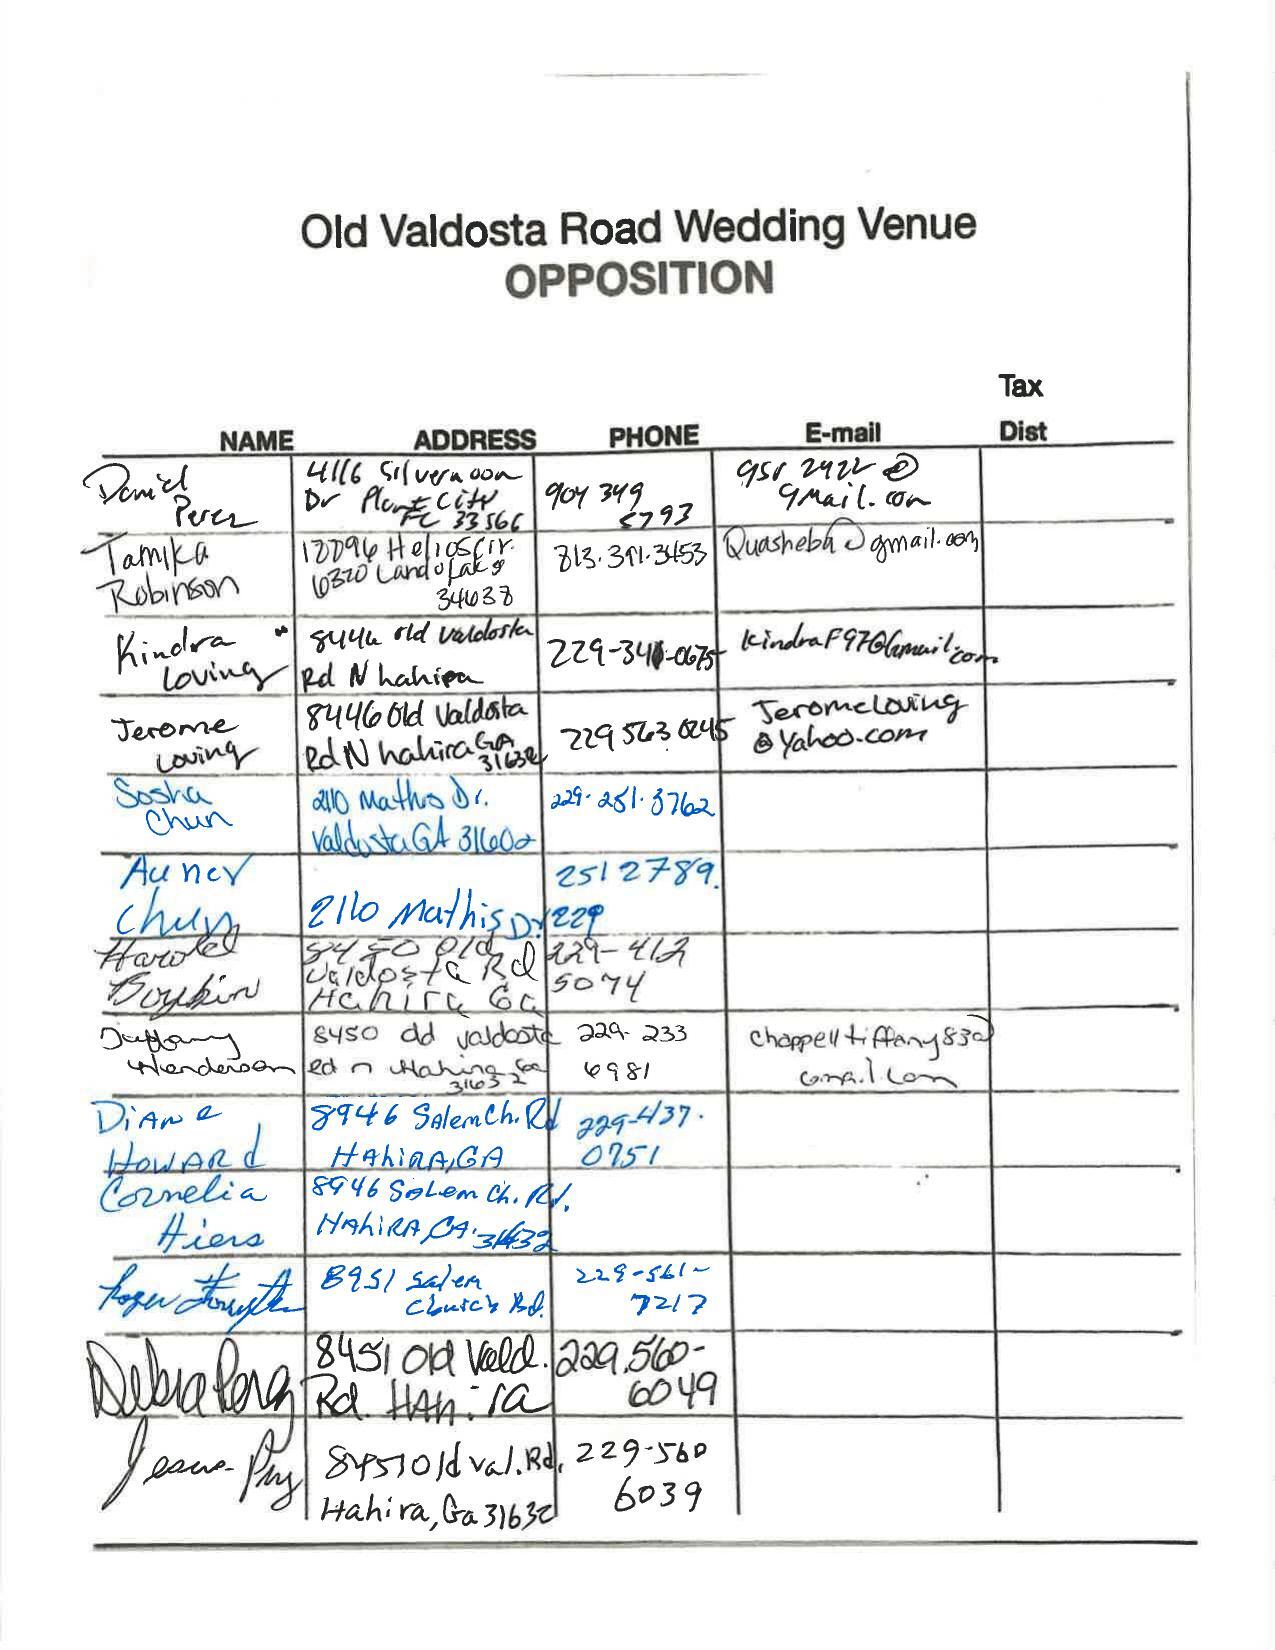 Old Valdosta Road Wedding Venue
OPPOSITION
Tax
NAME ADDRESS PHONE E-mail Dist
Daniel Perez 4116 Silvermoon Dr Plant City FL 33566 904 349 5793 951 2922 @ gmail.com
Tamika Robinson Helios Cir. Land O Lakes 813.391.3453 Quasheba@gmail.com
Kindra Loving 8446 old Valdosta Rd N hahira 229-341-0675 KindraF97@Gmail.com
Jerome Loving 8446 Old Valdosta Rd N hahira GA 31632 229 563 0245 Jeromeloving @Yahoo.com
Sosha Chun 2110 Mathis Dr. Valdosta GA 31602 229.251.3762
Chun 2110 Mathis Dr 251 2789. 229
Harold Boykin 8450 Old Valdosta Rd Hahira Ga 229-412 5074
Henderson 8450 old valdosta rd n Hahira Ga 31632 229-233 6981 chappelltiffany83@ gmail.com
Diane Howard 8946 Salem Ch. Rd HAhiRA, GA 229-437-0751
Cornelia Hiers 8946 Salem Ch. Rd. HAhiRA, GA. 31632
Roger Forsyth 8951 Salem Church Rd. 229-561-7217
Debra Perez 8451 Old Vald. Rd. HAHira 229.560-6049
8451 Old Val. Rd, Hahira, Ga 31632 229-560 6039